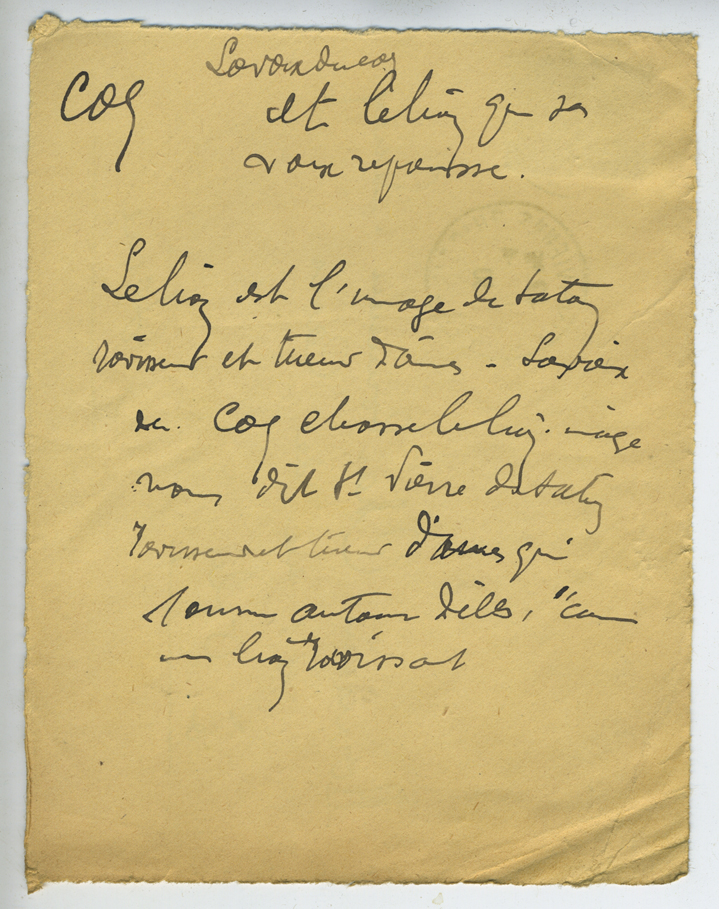 La voix du coq
Coq et le lion que sa
voix repousse.
Le lion est l'image de satan
ravisseur et tueur d'âmes - La voix
du Coq chasse le lion. image
nous dit St Pierre de satan
ravisseur et tueur d'ames qui
tourne autour d'elles, "com
un lion ravissant